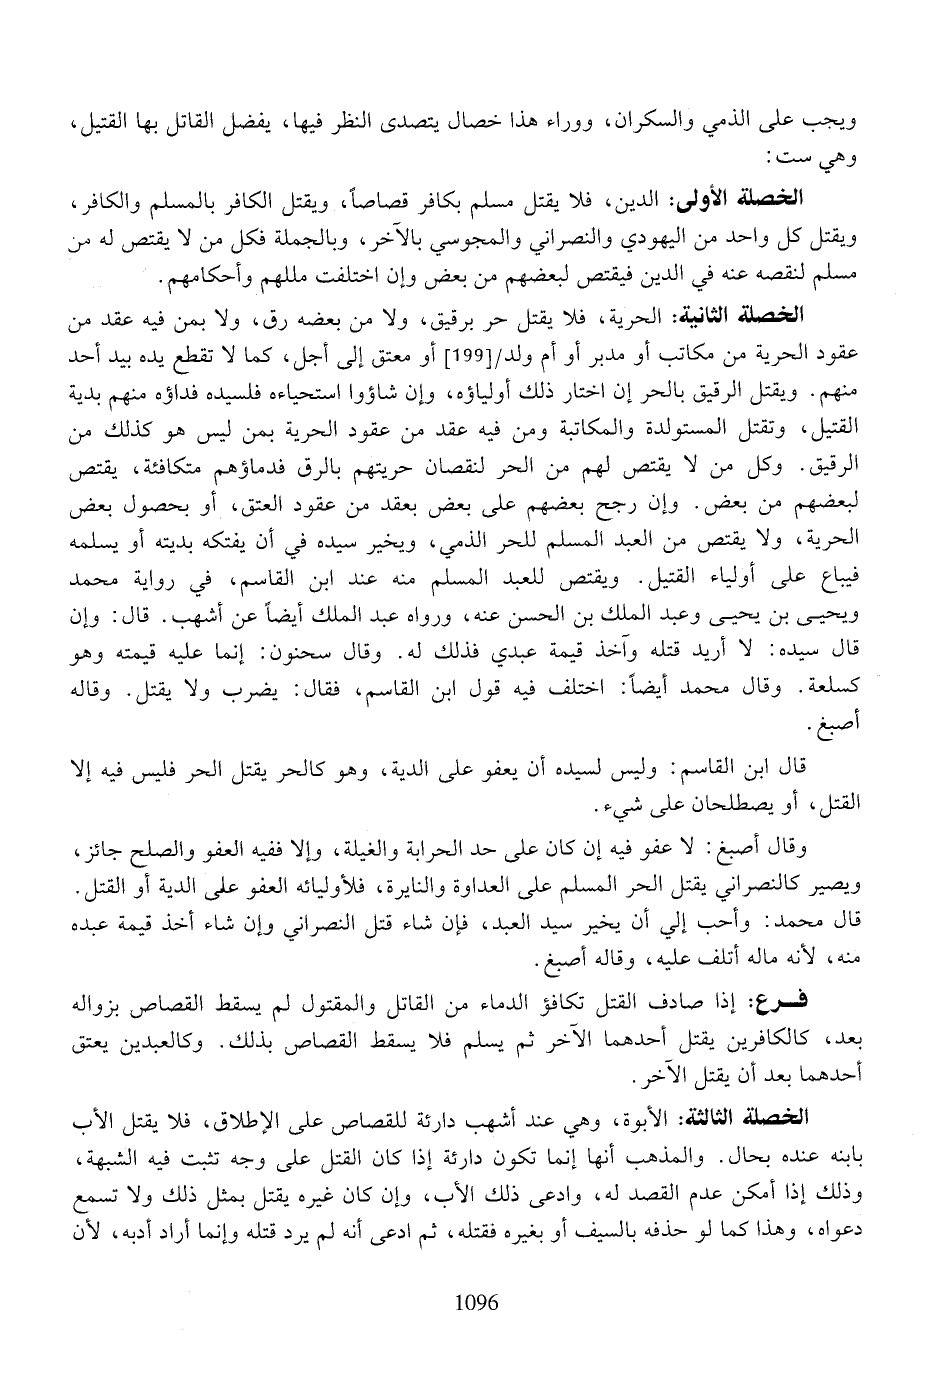 ويجب على الذمي والسكران، ووراء هذا خصال يتصدى النظر فيها، يفضل القاتل بها القتيل،
وهي ست:
الخصلة الأولى: الدين، فلا يقتل مسلم بكافر قصاصاً، ويقتل الكافر بالمسلم والكافر،
ويقتل كل واحد من اليهودي والنصراني والمجوسي بالآخر، وبالجملة فكل من لا يقتص له من
مسلم لنقصه عنه في الدين فيقتص لبعضهم من بعض وإن اختلفت مللهم وأحكامهم.
الخصلة الثانية: الحرية، فلا يقتل حر برقيق، ولا من بعضه رق، ولا بمن فيه عقد من
عقود الحرية من مكاتب أو مدبر أو أم ولد/[199] أو معتق إلى أجل، كما لا تقطع يده بيد أحد
منهم. ويقتل الرقيق بالحر إن اختار ذلك أولياؤه، وإن شاؤوا استحياءه فلسيده فداؤه منهم بدية
القتيل، وتقتل المستولدة والمكاتبة ومن فيه عقد من عقود الحرية بمن ليس هو كذلك من
الرقيق. وكل من لا يقتص لهم من الحر لنقصان حريتهم بالرق فدماؤهم متكافئة، يقتص
لبعضهم من بعض. وإن رجح بعضهم على بعض بعقد من عقود العتق، أو بحصول بعض
الحرية، ولا يقتص من العبد المسلم للحر الذمي، ويخير سيده في أن يفتكه بديته أو يسلمه
فيباع على أولياء القتيل. ويقتص للعبد المسلم منه عند ابن القاسم، في رواية محمد
ويحيى بن يحيى وعبد الملك بن الحسن عنه، ورواه عبد الملك أيضاً عن أشهب. قال: وإن
قال سيده: لا أريد قتله وآخذ قيمة عبدي فذلك له. وقال سحنون: إنما عليه قيمته وهو
كسلعة. وقال محمد أيضاً: اختلف فيه قول ابن القاسم، فقال: يضرب ولا يقتل. وقاله
أصبغ.
قال ابن القاسم: وليس لسيده أن يعفو على الدية، وهو كالحر يقتل الحر فليس فيه إلا
القتل، أو يصطلحان على شيء.
وقال أصبغ: لا عفو فيه إن كان على حد الحرابة والغيلة، وإلا ففيه العفو والصلح جائز،
ويصير كالنصراني يقتل الحر المسلم على العداوة والنايرة، فلأوليائه العفو على الدية أو القتل.
قال محمد: وأحب إلي أن يخير سيد العبد، فإن شاء قتل النصراني وإن شاء أخذ قيمة عبده
منه، لأنه ماله أتلف عليه، وقاله أصبغ.
فـرع: إذا صادف القتل تكافؤ الدماء من القاتل والمقتول لم يسقط القصاص بزواله
بعد، كالكافرين يقتل أحدهما الآخر ثم يسلم فلا يسقط القصاص بذلك. وكالعبدين يعتق
أحدهما بعد أن يقتل الآخر.
الخصلة الثالثة: الأبوة، وهي عند أشهب دارئة للقصاص على الإطلاق، فلا يقتل الأب
بابنه عنده بحال. والمذهب أنها إنما تكون دارئة إذا كان القتل على وجه تثبت فيه الشبهة،
وذلك إذا أمكن عدم القصد له، وادعى ذلك الأب، وإن كان غيره يقتل بمثل ذلك ولا تسمع
دعواه، وهذا كما لو حذفه بالسيف أو بغيره فقتله، ثم ادعى أنه لم يرد قتله وإنما أراد أدبه، لأن
1096